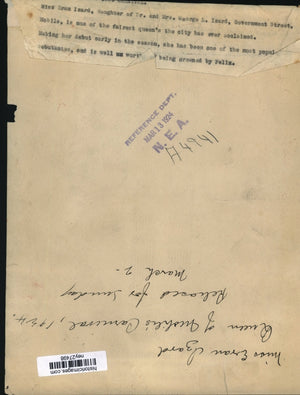 Miss Eran Izard, daughter of Dr. and Mrs. George L. Izard, Government Street,
Mobile, is one of the fairest queen's the city has ever acclaimed.
Making her debut early in the season, she has been one of the most popular
debutantes, and is well worth of being crowned by Felix.
REFERENCE DEPT.
MAR 13 1924
N. E. A.
Miss Eran Izard
Queen of Mobile's Carnival, 1924.
Released for Sunday
March 2-
historicimages.com